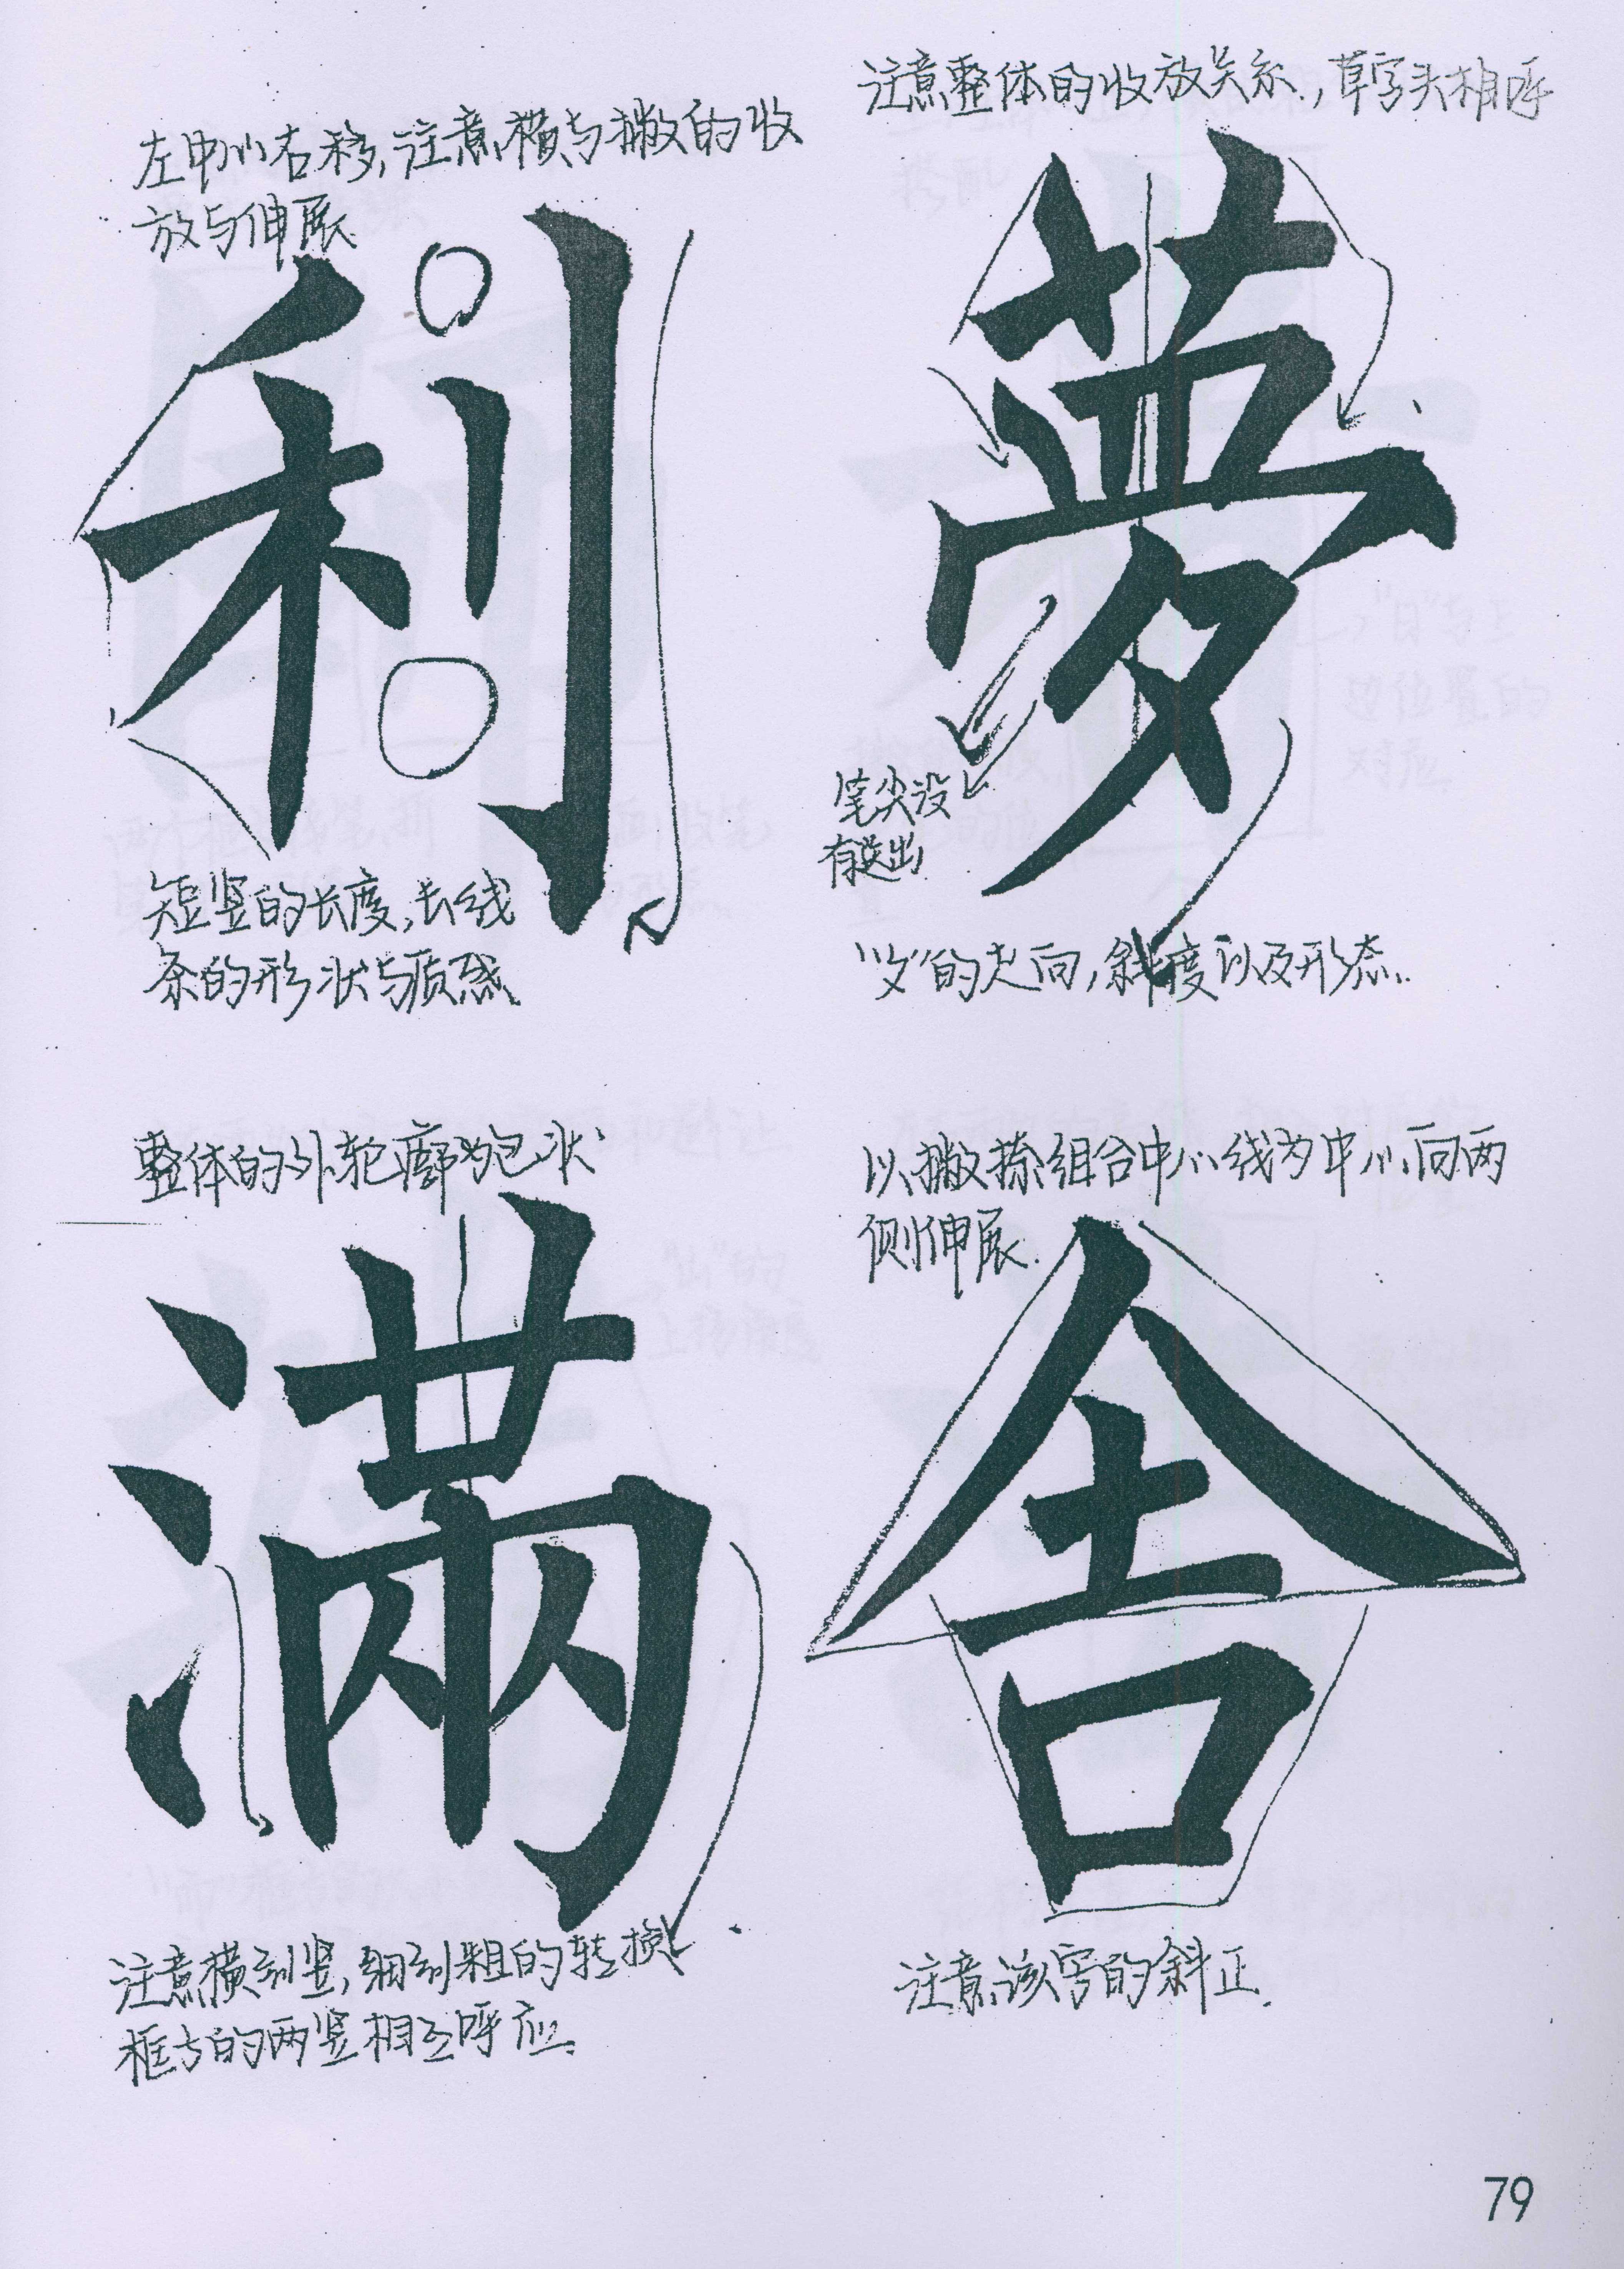 左中心右移,注意横与撇的收
放与伸展
利
短竖的长度,长线
条的形状与质感
注意整体的收放关系.,草字头相呼
夢
笔尖没
有送出
"夕"的走向,斜度以及形态.
整体的外轮廓为包状
滿
注意横到竖,细到粗的转换
框方的两竖相互呼应。
以撇捺组合中心线为中心向两
侧伸展.
舍
注意该字的斜正.
79